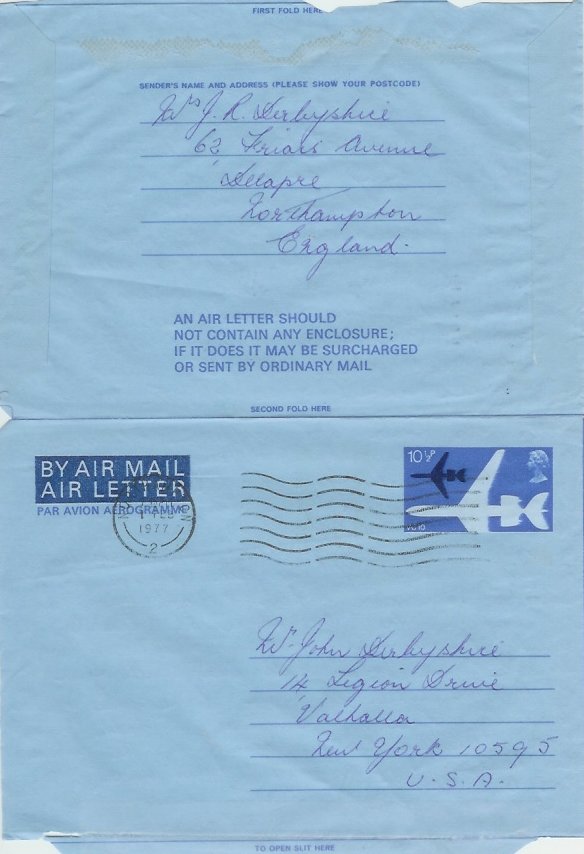 FIRST FOLD HERE
SENDER'S NAME AND ADDRESS (PLEASE SHOW YOUR POSTCODE)
Mrs J. R. Derbyshire
62 Friars Avenue
Delapre
Northampton
England.
AN AIR LETTER SHOULD
NOT CONTAIN ANY ENCLOSURE;
IF IT DOES IT MAY BE SURCHARGED
OR SENT BY ORDINARY MAIL
SECOND FOLD HERE
BY AIR MAIL
AIR LETTER
PAR AVION AÉROGRAMME
10½P
VC10
FEB
1977
2
Mr John Derbyshire
14 Legion Drive
Valhalla
New York 10595
U.S.A.
TO OPEN SLIT HERE